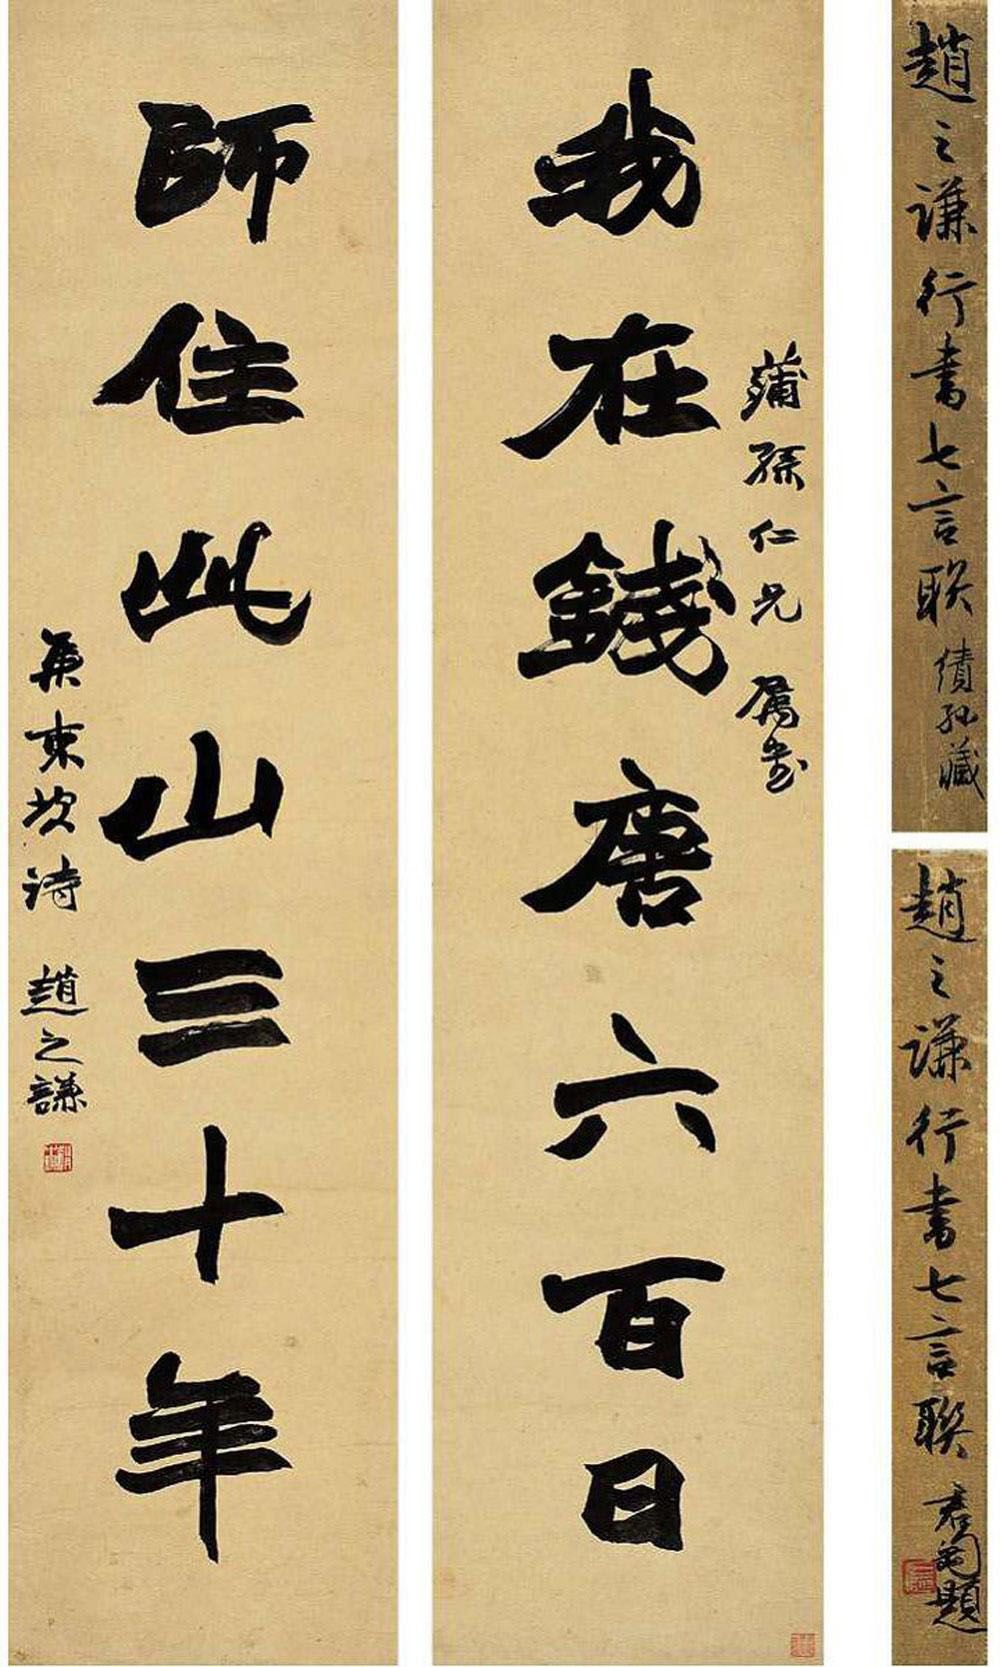 趙之謙行書七言联 績孙藏
趙之謙行書七言聯 君匋題
蒲孫仁兄属書
我在錢唐六百日
師住此山三十年
集東坡詩 趙之謙